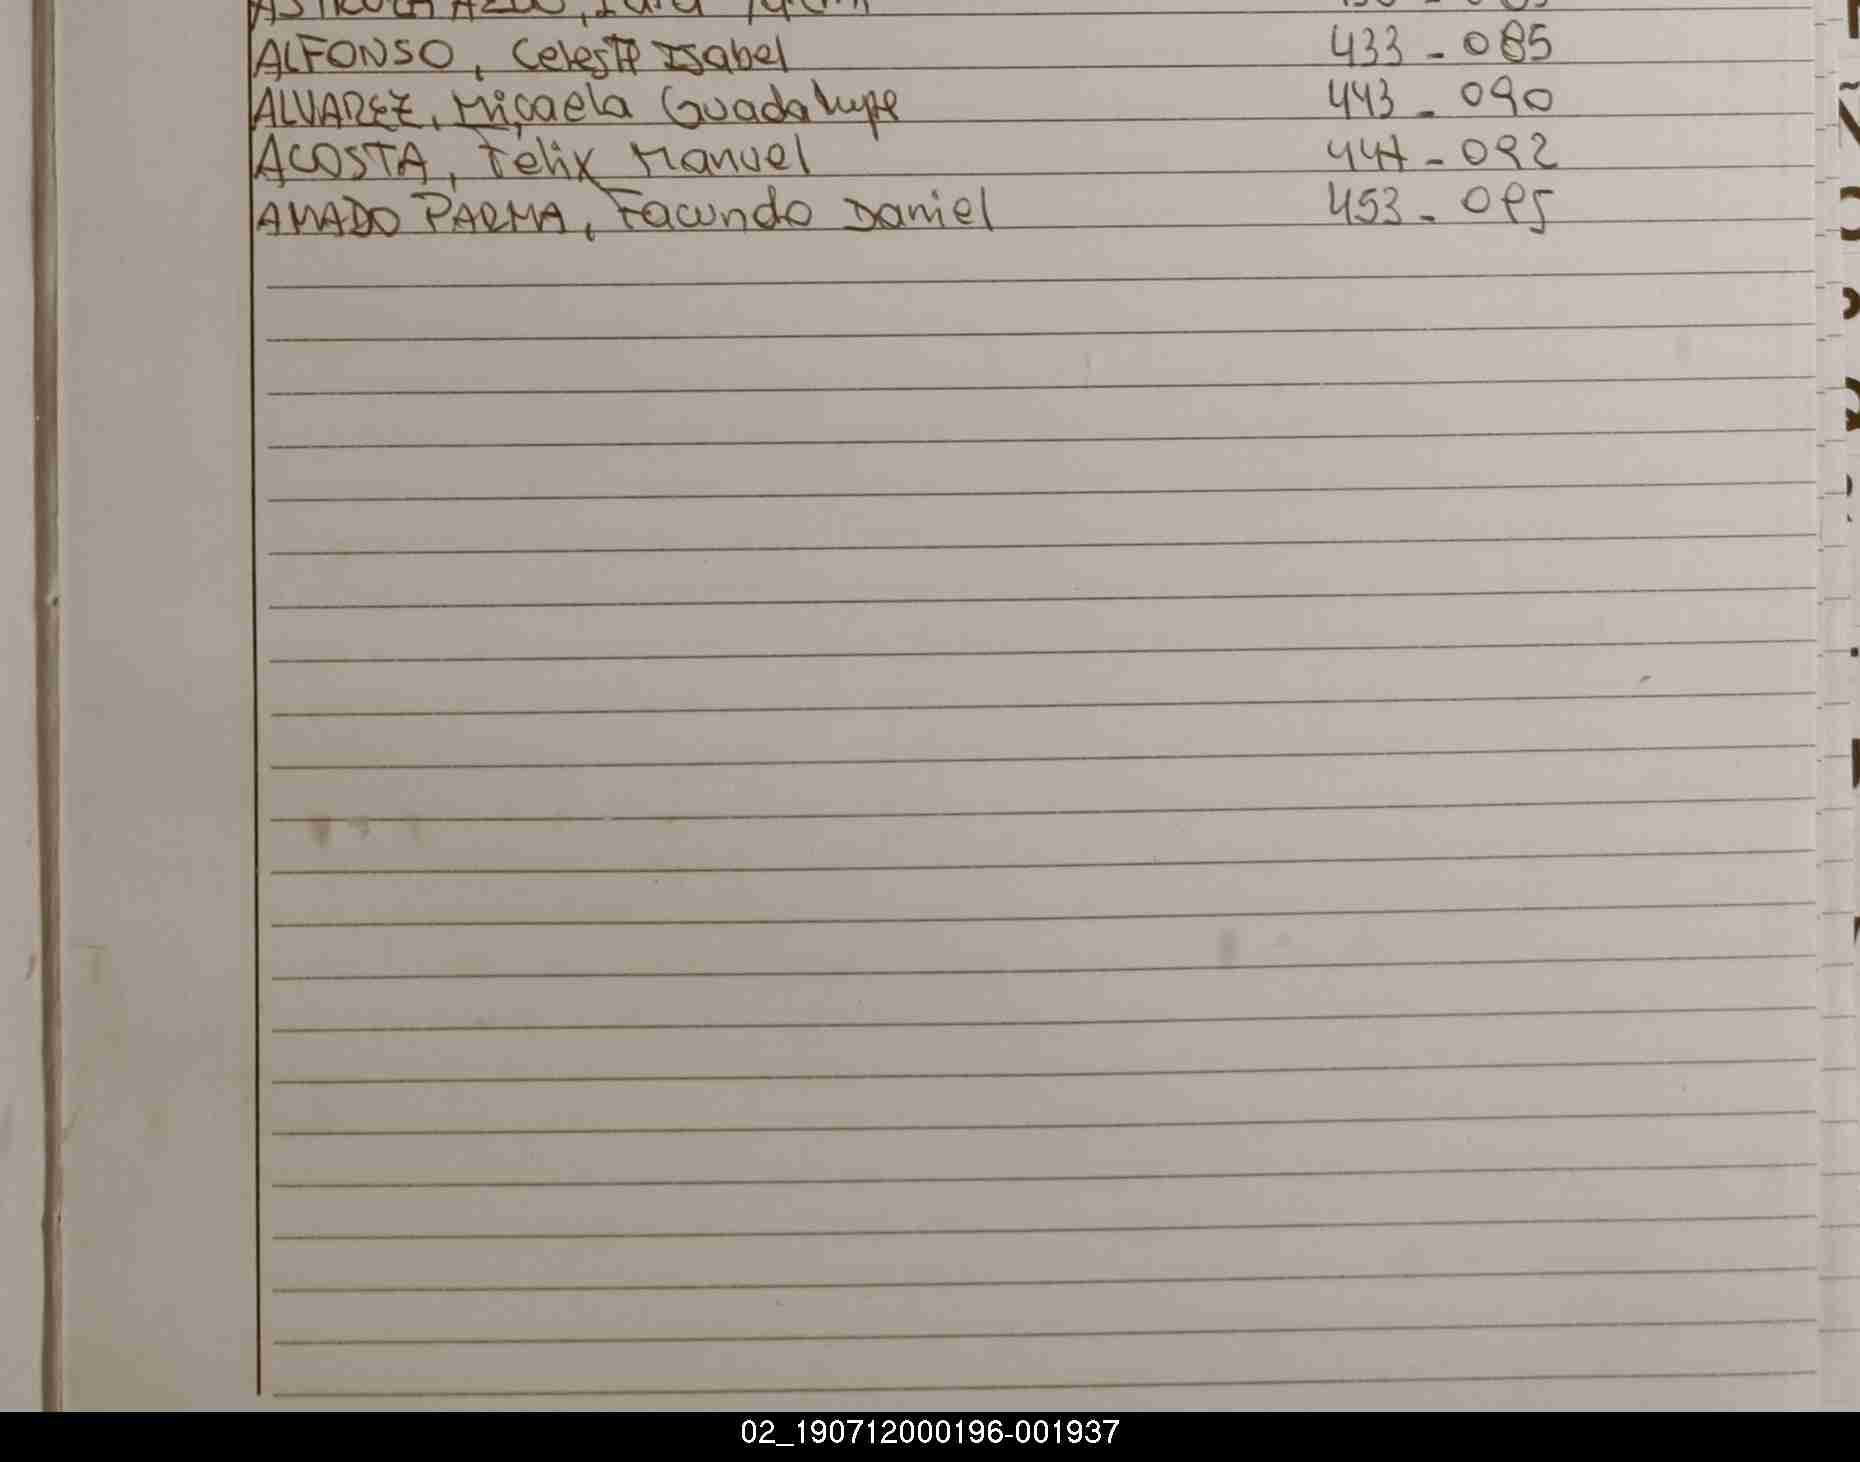 ALFONSO, Celeste Isabel 433 - 085
ALVAREZ, Micaela Guadalupe 443 - 090
ACOSTA, Félix Manuel 447 - 092
AMADO PARMA, Facundo Daniel 453 - 095
02_190712000196-001937